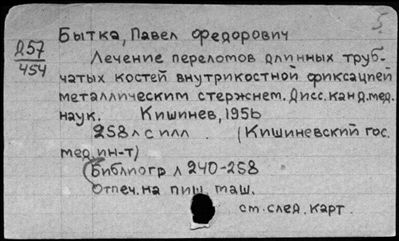 5.
Бытка, Павел Федорович
Д57
454
Лечение переломов длинных труб-
чатых костей внутрикостной фиксацией
металлическим стержнем. Дисс. канд. мед.
наук. Кишинев, 1956
258 л с илл (Кишиневский гос.
мед. ин-т)
(Библиогр л 240-258
Отпеч. на пиш. маш.
см. след. карт.